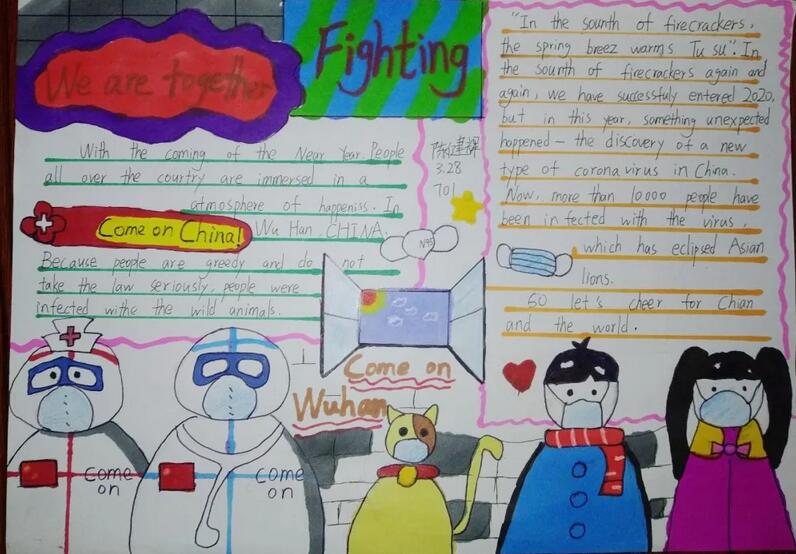 We are together
Fighting
With the coming of the Near Year.People
all over the courtry are immersed in a
atmosphere of happeniss. In
Come on China!
Wu Han CHINA.
Because people are greedy and do not
take the law seriously, people were
infected withe the wild animals.
3.28
701
N95
"In the sounth of firecrackers,
the spring breez warms Tu su". In
the sounth of firecrackers again and
again, we have successfuly entered 2020.
but in this year, something unexpected
happened - the discovery of a new
type of coronavirus in China.
Now, more than 10000 people have
been infected with the virus,
which has eclipsed Asian
lions.
So let's cheer for Chian
and the world.
Come on
Wuhan
come
on
come
on